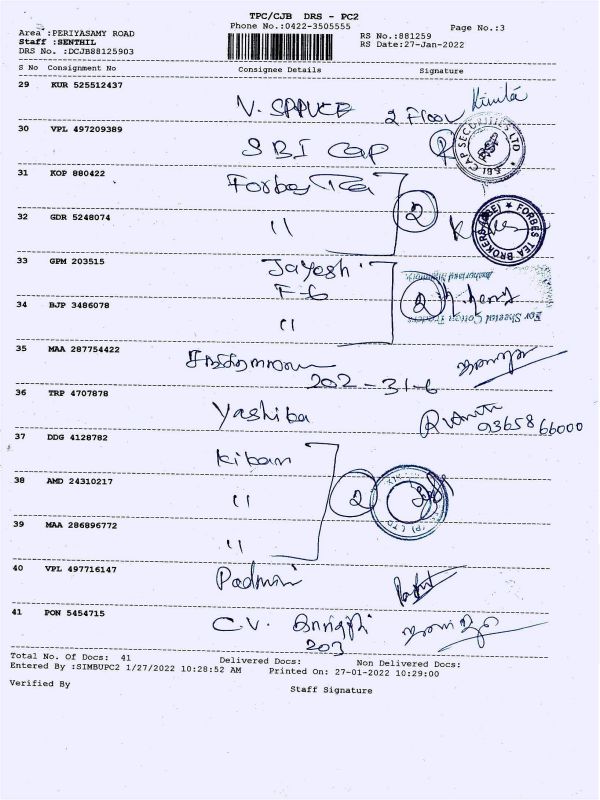 TPC/CJB DRS - PC2
Phone No.:0422-3505555
Page No.:3
Area :PERIYASAMY ROAD
Staff :SENTHIL
DRS No. :DCJB88125903
RS No.:881259
RS Date:27-Jan-2022
S No Consignment No Consignee Details Signature
29 KUR 525512437
2 Floor
30 VPL 497209389
SBI Cap
SBI CAP SECURITIES LTD
31 KOP 880422
Forbes Tea
2
32 GDR 5248074
"
FORBES TEA BROKERS (CBE)
33 GPM 203515
Jayesh
Authorised Signatory
2
For Sheetal Cotton Traders
34 BJP 3486078
"
35 MAA 287754422
202-31-6
36 TRP 4707878
Yashiba
93658 66000
37 DDG 4128782
Kiban
38 AMD 24310217
"
2
39 MAA 286896772
"
40 VPL 497716147
Padmini
41 PON 5454715
C.V.
203
Total No. Of Docs: 41 Delivered Docs: Non Delivered Docs:
Entered By :SIMBUPC2 1/27/2022 10:28:52 AM Printed On: 27-01-2022 10:29:00
Verified By
Staff Signature